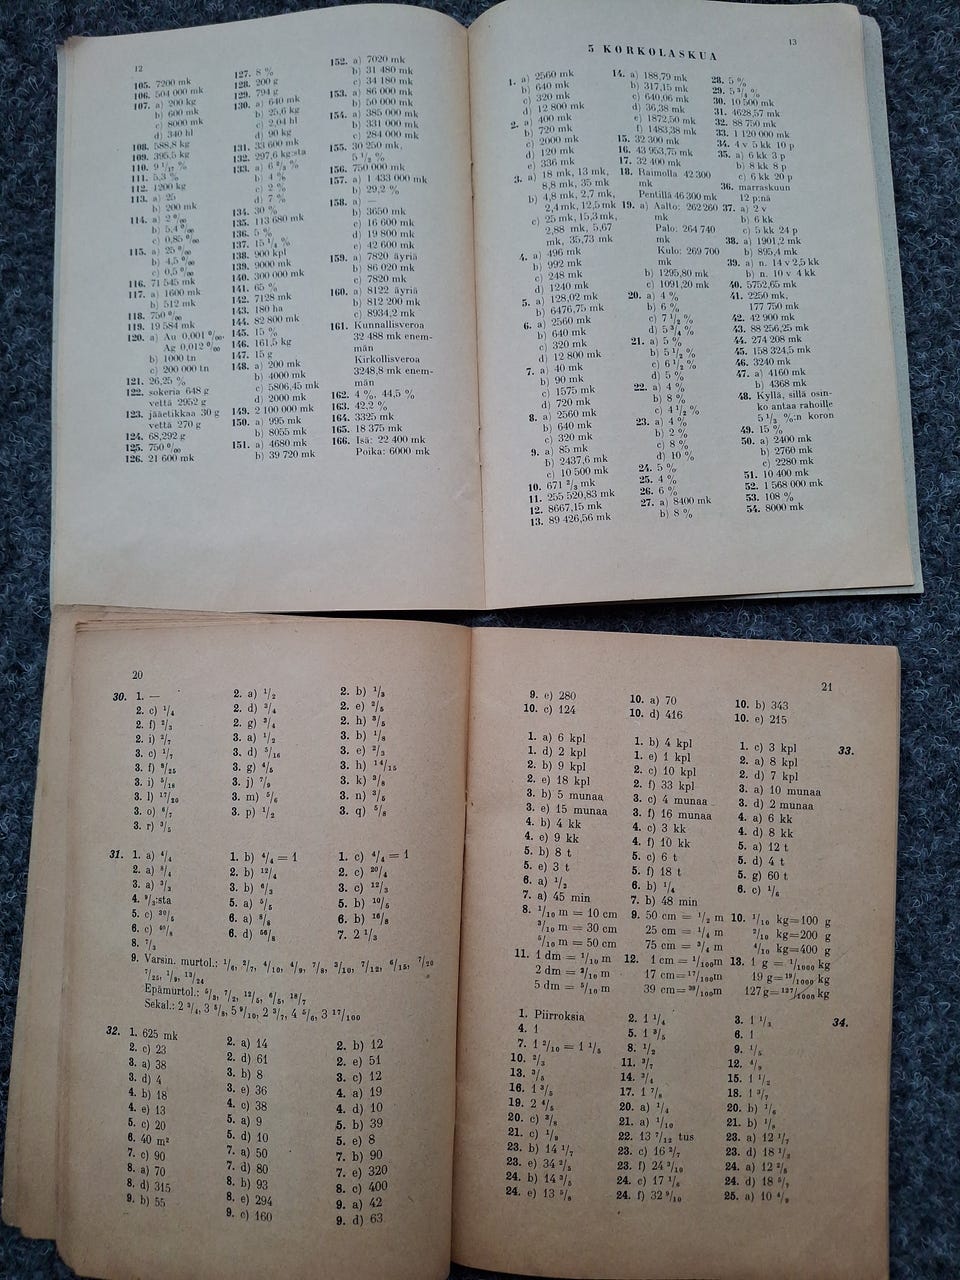 12
105. 7200 mk
106. 504 000 mk
107. a) 200 kg
b) 600 mk
c) 8000 mk
d) 340 hl
108. 588,8 kg
109. 395,5 kg
110. 9 1/17 %
111. 5,3 %
112. 1200 kg
113. a) 25
b) 200 mk
114. a) 2 ‰
b) 5,4 ‰
c) 0,85 ‰
115. a) 25 ‰
b) 4,5 ‰
c) 0,5 ‰
116. 71 545 mk
117. a) 1600 mk
b) 512 mk
118. 750 ‰
119. 19 584 mk
120. a) Au 0,001 ‰
Ag 0,012 ‰
b) 1000 tn
c) 200 000 tn
121. 26,25 %
122. sokeria 648 g
vettä 2952 g
123. jääetikkaa 30 g
vettä 270 g
124. 68,292 g
125. 750 ‰
126. 21 600 mk
127. 8 %
128. 200 g
129. 794 g
130. a) 640 mk
b) 25,6 kg
c) 2,04 hl
d) 90 kg
131. 33 600 mk
132. 297,6 kg:sta
133. a) 6 2/3 %
b) 4 %
c) 2 %
d) 7 %
134. 30 %
135. 113 680 mk
136. 5 %
137. 15 1/4 %
138. 900 kpl
139. 9000 mk
140. 300 000 mk
141. 65 %
142. 7128 mk
143. 180 ha
144. 82 800 mk
145. 15 %
146. 161,5 kg
147. 15 g
148. a) 200 mk
b) 4000 mk
c) 5806,45 mk
d) 2000 mk
149. 2 100 000 mk
150. a) 995 mk
b) 8055 mk
151. a) 4680 mk
b) 39 720 mk
152. a) 7020 mk
b) 31 480 mk
c) 34 180 mk
153. a) 86 000 mk
b) 50 000 mk
154. a) 385 000 mk
b) 331 000 mk
c) 284 000 mk
155. 30 250 mk,
5 1/2 %
156. 750 000 mk
157. a) 1 433 000 mk
b) 29,2 %
158. a) —
b) 3650 mk
c) 16 600 mk
d) 19 800 mk
e) 42 600 mk
159. a) 7820 äyriä
b) 86 020 mk
c) 7820 mk
160. a) 8122 äyriä
b) 812 200 mk
c) 8934,2 mk
161. Kunnallisveroa
32 488 mk enem-
män
Kirkollisveroa
3248,8 mk enem-
män
162. 4 %, 44,5 %
163. 42,2 %
164. 3325 mk
165. 18 375 mk
166. Isä: 22 400 mk
Poika: 6000 mk
13
5 KORKOLASKUA
1. a) 2560 mk
b) 640 mk
c) 320 mk
d) 12 800 mk
2. a) 400 mk
b) 720 mk
c) 2000 mk
d) 120 mk
e) 336 mk
3. a) 18 mk, 13 mk,
8,8 mk, 35 mk
b) 4,8 mk, 2,7 mk,
2,4 mk, 12,5 mk
c) 25 mk, 15,3 mk,
2,88 mk, 5,67
mk, 35,73 mk
4. a) 496 mk
b) 992 mk
c) 248 mk
d) 1240 mk
5. a) 128,02 mk
b) 6476,75 mk
6. a) 2560 mk
b) 640 mk
c) 320 mk
d) 12 800 mk
7. a) 40 mk
b) 90 mk
c) 1575 mk
d) 720 mk
8. a) 2560 mk
b) 640 mk
c) 320 mk
9. a) 85 mk
b) 2437,6 mk
c) 10 500 mk
10. 671 2/3 mk
11. 255 520,83 mk
12. 8667,15 mk
13. 89 426,56 mk
14. a) 188,79 mk
b) 317,15 mk
c) 640,06 mk
d) 36,38 mk
e) 1872,50 mk
f) 1483,38 mk
15. 32 300 mk
16. 43 953,75 mk
17. 32 400 mk
18. Raimolla 42 300
mk
Pentillä 46 300 mk
19. a) Aalto: 262 260
mk
Palo: 264 740
mk
Kulo: 269 700
mk
b) 1295,80 mk
c) 1091,20 mk
20. a) 4 %
b) 6 %
c) 7 1/2 %
d) 5 3/4 %
21. a) 5 %
b) 5 1/2 %
c) 6 1/2 %
d) 5 %
22. a) 4 %
b) 8 %
c) 4 1/2 %
23. a) 4 %
b) 2 %
c) 8 %
d) 10 %
24. 5 %
25. 4 %
26. 6 %
27. a) 8400 mk
b) 8 %
28. 5 %
29. 5 3/4 %
30. 10 500 mk
31. 4628,57 mk
32. 88 750 mk
33. 1 120 000 mk
34. 4 v 5 kk 10 p
35. a) 6 kk 3 p
b) 8 kk 8 p
c) 6 kk 20 p
36. marraskuun
12 p:nä
37. a) 2 v
b) 6 kk
c) 5 kk 24 p
38. a) 1901,2 mk
b) 895,4 mk
39. a) n. 14 v 2,5 kk
b) n. 10 v 4 kk
40. 5752,65 mk
41. 2250 mk,
177 750 mk
42. 42 900 mk
43. 88 256,25 mk
44. 274 208 mk
45. 158 324,5 mk
46. 3240 mk
47. a) 4160 mk
b) 4368 mk
48. Kyllä, sillä osin-
ko antaa rahoille
5 1/3 %:n koron
49. 15 %
50. a) 2400 mk
b) 2760 mk
c) 2280 mk
51. 10 400 mk
52. 1 568 000 mk
53. 108 %
54. 8000 mk
20
30. 1. — 2. a) 1/2 2. b) 1/3
2. c) 1/4 2. d) 3/4 2. e) 2/5
2. f) 2/3 2. g) 3/4 2. h) 3/5
2. i) 2/7 3. a) 1/2 3. b) 1/8
3. c) 1/7 3. d) 5/16 3. e) 2/3
3. f) 8/25 3. g) 4/5 3. h) 14/15
3. i) 5/18 3. j) 7/9 3. k) 3/8
3. l) 17/20 3. m) 5/6 3. n) 3/5
3. o) 6/7 3. p) 1/2 3. q) 5/8
3. r) 3/5
31. 1. a) 4/4 1. b) 4/4 = 1 1. c) 4/4 = 1
2. a) 8/4 2. b) 12/4 2. c) 20/4
3. a) 3/3 3. b) 6/3 3. c) 12/3
4. 9/3:sta 5. a) 5/5 5. b) 10/5
5. c) 30/5 6. a) 8/8 6. b) 16/8
6. c) 40/8 6. d) 56/8 7. 2 1/3
8. 7/3
9. Varsin. murtol.: 1/6, 2/7, 4/10, 4/9, 7/8, 3/10, 7/12, 6/15, 7/20
7/25, 1/9, 13/24
Epämurtol.: 5/3, 7/2, 12/5, 6/5, 18/7
Sekal.: 2 3/4, 3 5/8, 5 9/10, 2 3/7, 4 5/6, 3 17/100
32. 1. 625 mk 2. a) 14 2. b) 12
2. c) 23 2. d) 61 2. e) 51
3. a) 38 3. b) 8 3. c) 12
3. d) 4 3. e) 36 4. a) 19
4. b) 18 4. c) 38 4. d) 10
4. e) 13 5. a) 9 5. b) 39
5. c) 20 5. d) 10 5. e) 8
6. 40 m² 7. a) 50 7. b) 90
7. c) 90 7. d) 80 7. e) 320
8. a) 70 8. b) 93 8. c) 400
8. d) 315 8. e) 294 9. a) 42
9. b) 55 9. c) 160 9. d) 63
21
9. e) 280 10. a) 70 10. b) 343
10. c) 124 10. d) 416 10. e) 215
1. a) 6 kpl 1. b) 4 kpl 1. c) 3 kpl 33.
1. d) 2 kpl 1. e) 1 kpl 2. a) 8 kpl
2. b) 9 kpl 2. c) 10 kpl 2. d) 7 kpl
2. e) 18 kpl 2. f) 33 kpl 3. a) 10 munaa
3. b) 5 munaa 3. c) 4 munaa 3. d) 2 munaa
3. e) 15 munaa 3. f) 16 munaa 4. a) 6 kk
4. b) 4 kk 4. c) 3 kk 4. d) 8 kk
4. e) 9 kk 4. f) 10 kk 5. a) 12 t
5. b) 8 t 5. c) 6 t 5. d) 4 t
5. e) 3 t 5. f) 18 t 5. g) 60 t
6. a) 1/2 6. b) 1/4 6. c) 1/6
7. a) 45 min 7. b) 48 min
8. 1/10 m = 10 cm 9. 50 cm = 1/2 m 10. 1/10 kg=100 g
3/10 m = 30 cm 25 cm = 1/4 m 2/10 kg=200 g
5/10 m = 50 cm 75 cm = 3/4 m 4/10 kg=400 g
11. 1 dm = 1/10 m 12. 1 cm = 1/100m 13. 1 g = 1/1000 kg
2 dm = 2/10 m 17 cm=17/100m 19 g=19/1000 kg
5 dm = 5/10 m 39 cm=39/100m 127g=127/1000 kg
1. Piirroksia 2. 1 1/4 3. 1 1/3 34.
4. 1 5. 1 3/5 6. 1
7. 1 2/10 = 1 1/5 8. 1/2 9. 1/5
10. 2/3 11. 3/7 12. 4/9
13. 3/5 14. 3/4 15. 1 1/2
16. 1 3/5 17. 1 7/8 18. 1 3/7
19. 2 4/5 20. a) 1/4 20. b) 1/6
20. c) 3/8 21. a) 1/10 21. b) 1/8
21. c) 1/9 22. 13 7/12 tus 23. a) 12 1/7
23. b) 14 1/7 23. c) 16 2/7 23. d) 18 1/3
23. e) 34 2/5 23. f) 24 3/10 24. a) 12 2/5
24. b) 14 3/5 24. c) 17 1/6 24. d) 18 5/7
24. e) 13 5/8 24. f) 32 9/10 25. a) 10 4/9